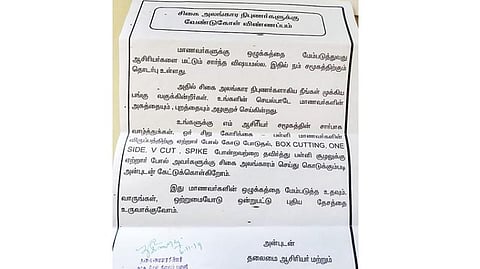 சிகை அலங்கார நிபுணர்களுக்கு
வேண்டுகோள் விண்ணப்பம்
மாணவர்களுக்கு ஒழுக்கத்தை மேம்படுத்துவது
ஆசிரியர்களை மட்டும் சார்ந்த விஷயமல்ல. இதில் நம் சமூகத்திற்கும்
தொடர்பு உள்ளது.
அதில் சிகை அலங்கார நிபுணர்களாகிய நீங்கள் முக்கிய
பங்கு வகுக்கின்றீர்கள். உங்களின் செயல்பாடே மாணவர்களின்
அகத்தையும் , புறத்தையும் அழகுறச் செய்கின்றது.
உங்களுக்கு எம் ஆசிரியர் சமூகத்தின் சார்பாக
வாழ்த்துக்கள். ஓர் சிறு கோரிக்கை – பள்ளி மாணவர்களின்
விருப்பத்திற்கு ஏற்றார் போல் கோடு போடுதல், BOX CUTTING, ONE
SIDE, V CUT , SPIKE போன்றவற்றை தவிர்த்து பள்ளி சூழலுக்கு
ஏற்றார் போல் அவர்களுக்கு சிகை அலங்காரம் செய்து கொடுக்கும்படி
அன்புடன் கேட்டுக்கொள்கிறோம்.
இது மாணவர்களின் ஒழுக்கத்தை மேம்படுத்த உதவும்.
வாருங்கள், ஒற்றுமையோடு ஒன்றுபட்டு புதிய தேசத்தை
உருவாக்குவோம்.
அன்புடன்
தலைமை ஆசிரியர் மற்றும்